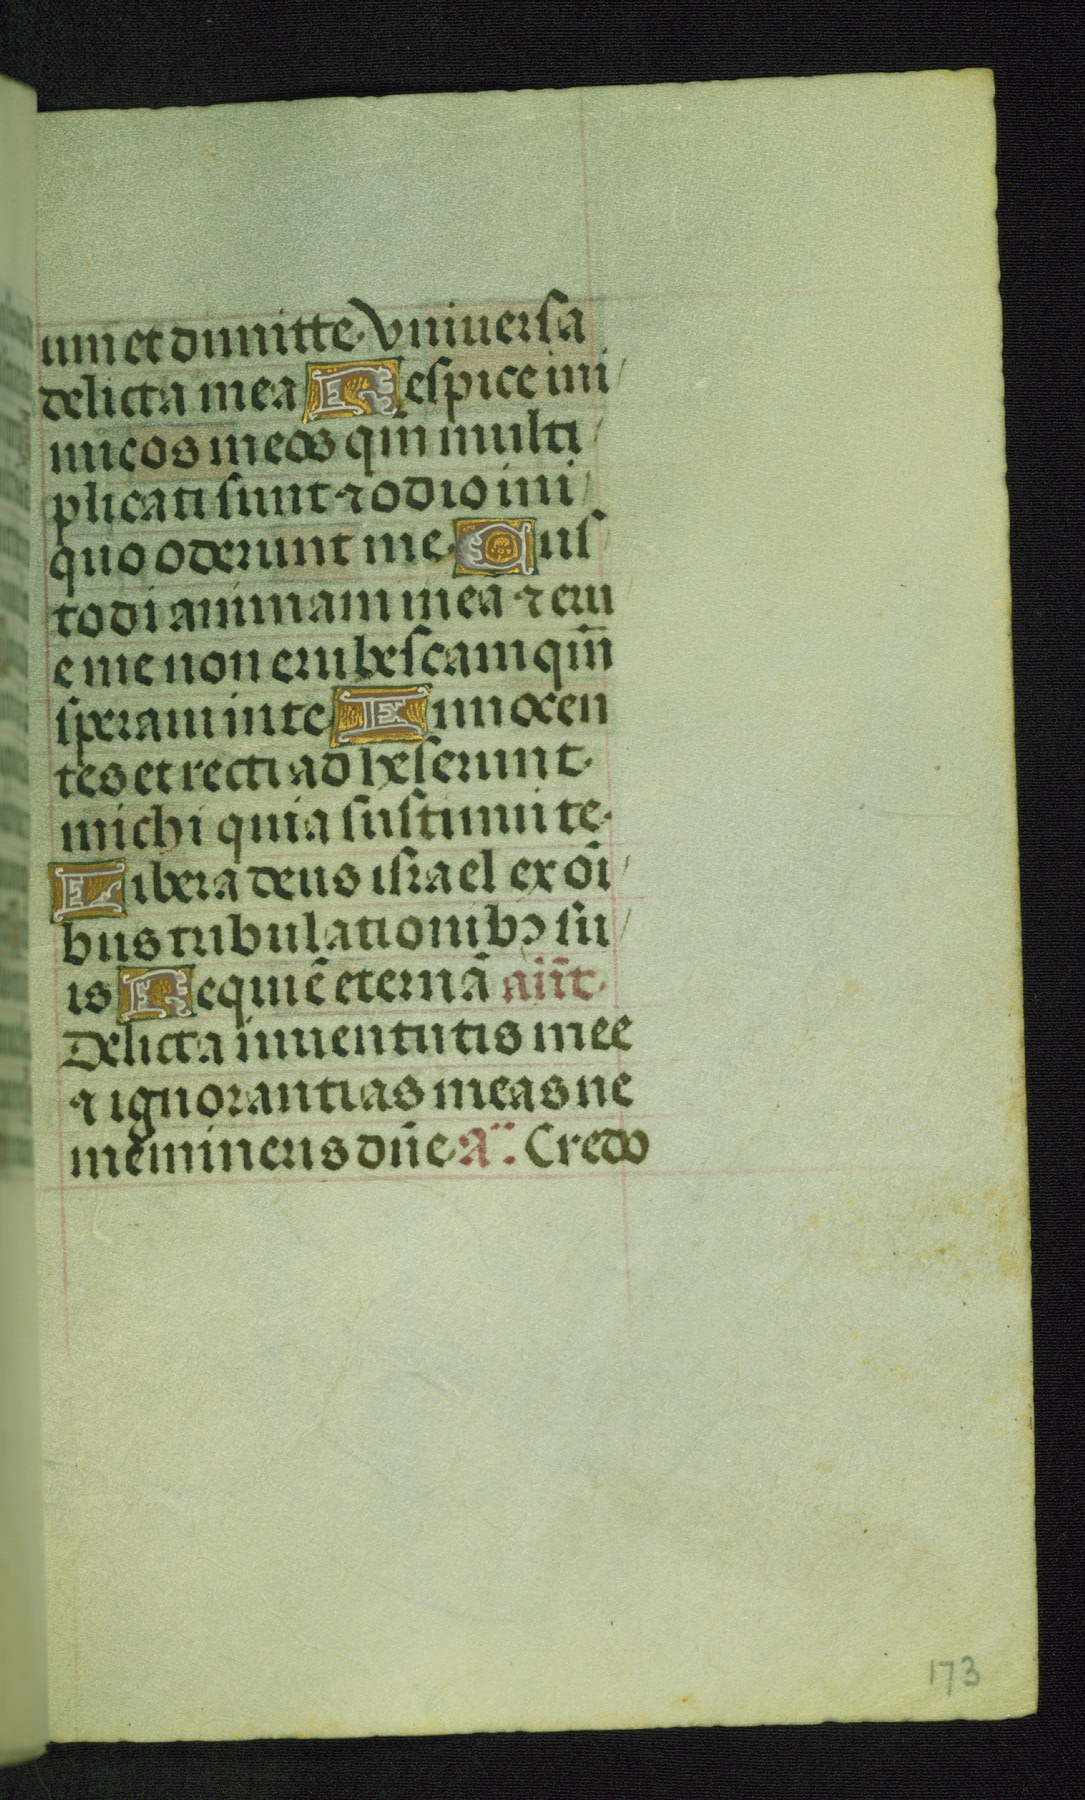 um et dimitte. Vniuersa
delicta mea Respice ini
micos meos qm̄ multi
plicati sunt ⁊ odio ini
quo oderunt me. Cus
todi animam mea ⁊ eru
e me non erubescam qm̄
speraui in te Innocen
tes et recti adheserunt.
michi quia sustinui te.
Libera deus israel ex oī
bus tribulationibꝫ su
is Requiē eternā añt.
Delicta iuuentutis mee
⁊ ignorantias meas ne
memineris dn̄e. a. Credo
173